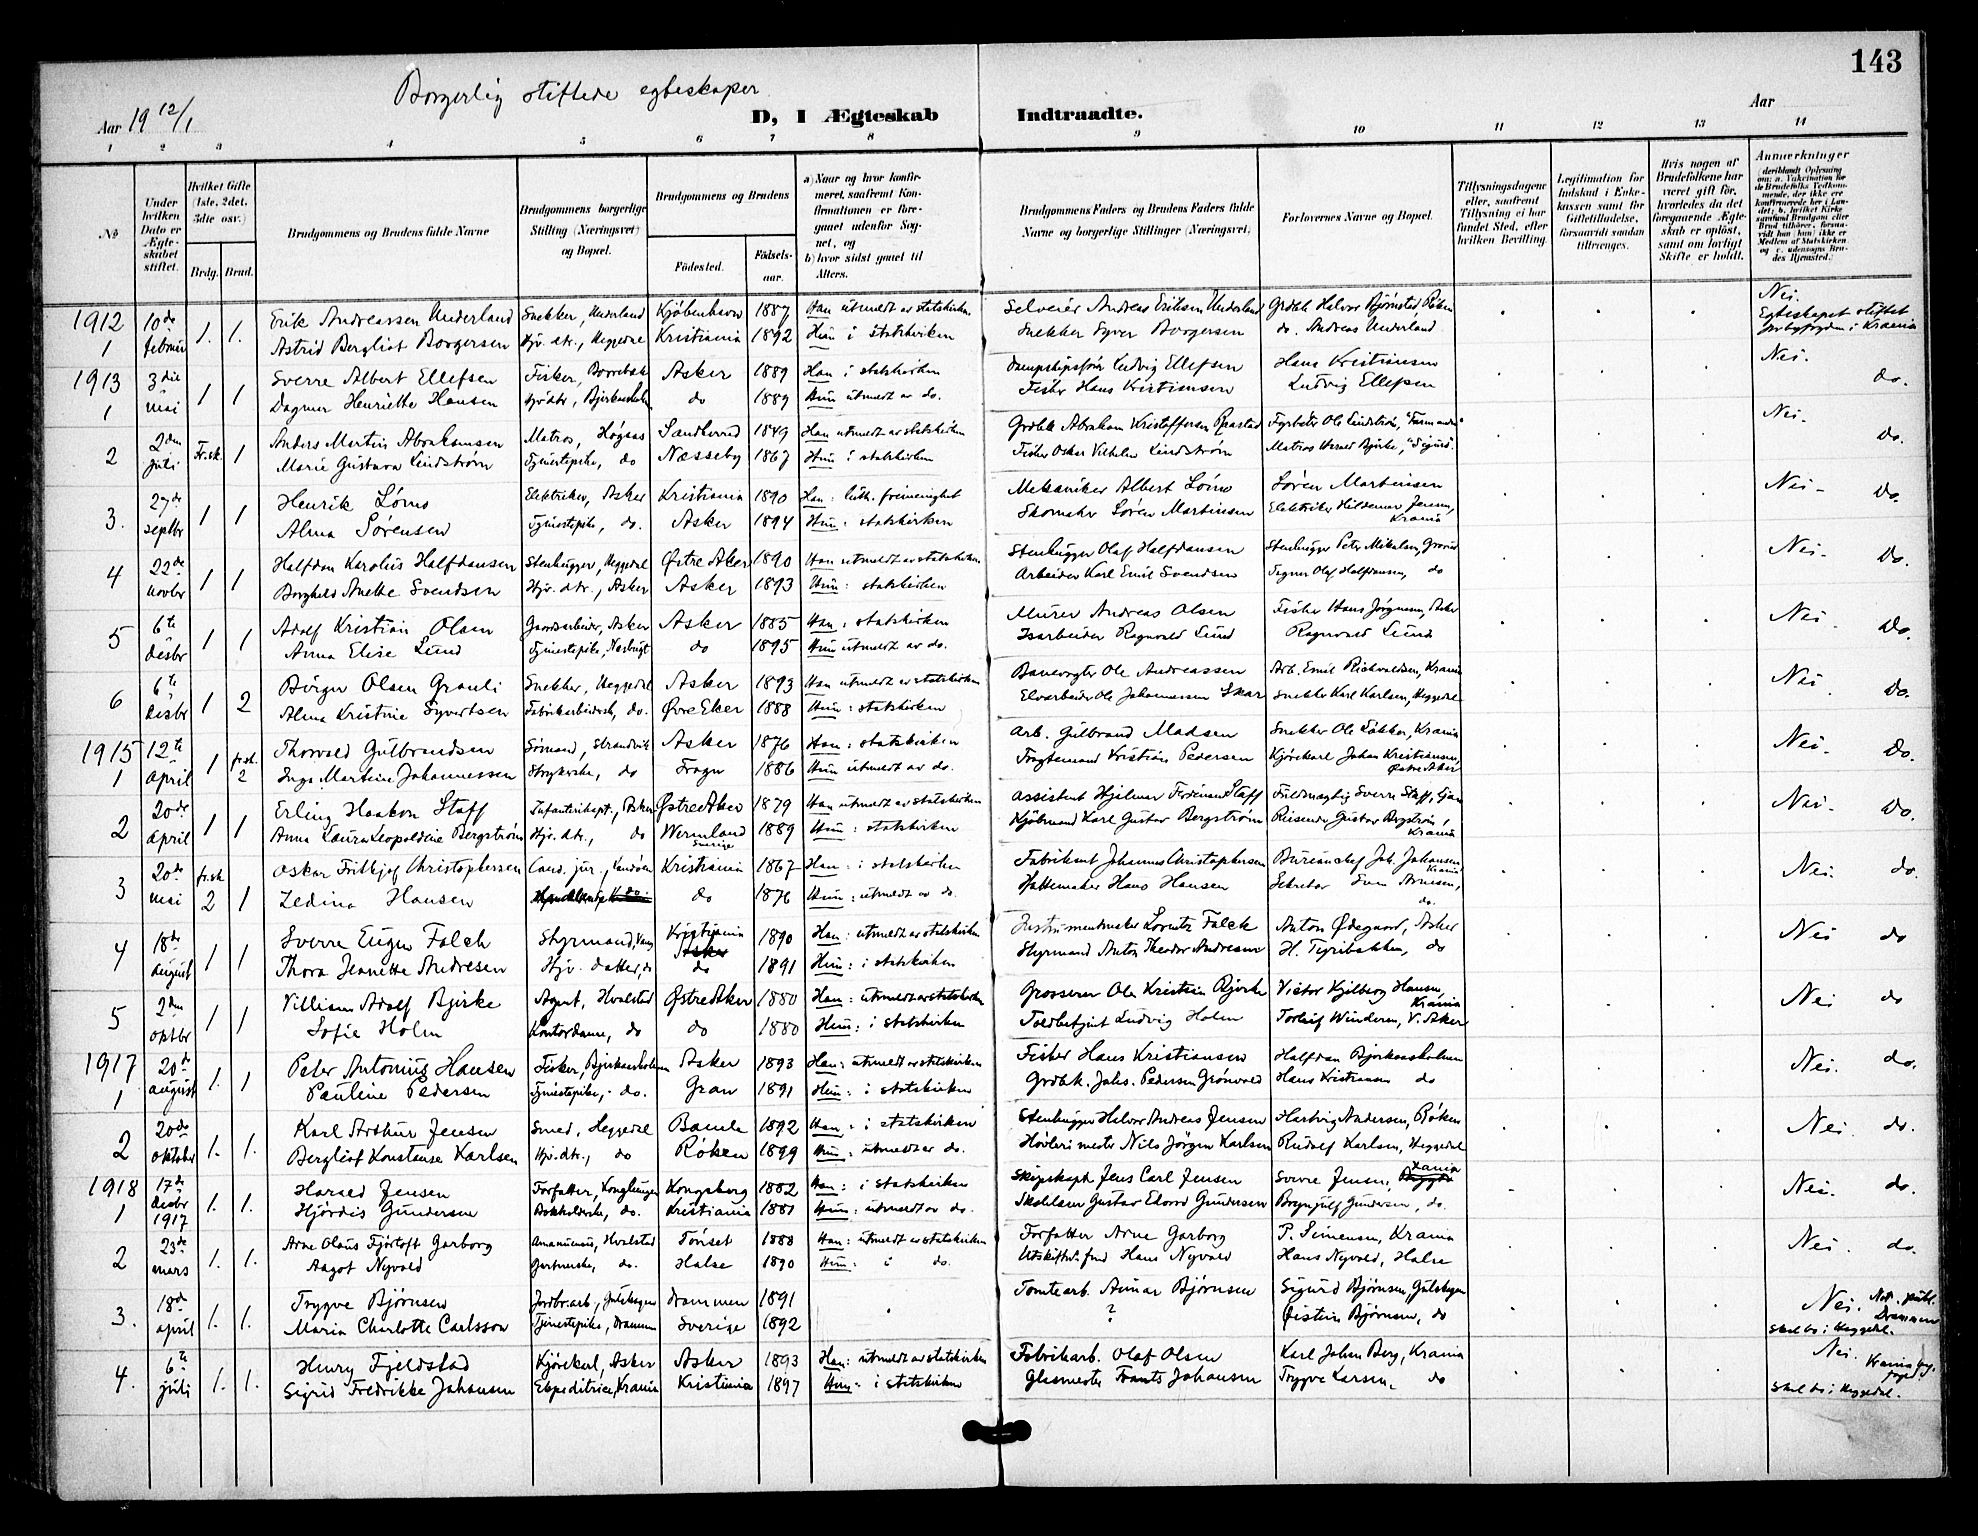 143
Borgerlig stiftede egteskaper
Aar 19 12/1
D, I Ægteskab Indtraadte.
Aar
1 2 3 4 5 6 7 8 9 10 11 12 13 14
No
Under hvilken Dato er Ægteskabet stiftet.
Hvilket Gifte (1ste, 2det, 3die osv.)
Brdg. Brud.
Brudgommens og Brudens fulde Navne
Brudgommens borgerlige Stilling (Næringsvei) og Bopæl.
Brudgommens og Brudens
Fødested. Fødselsaar.
a) Naar og hvor konfirmeret, saafremt Konfirmationen er foregaaet udenfor Sognet, og
b) hvor sidst gaaet til Alters.
Brudgommens Faders og Brudens Faders fulde Navne og borgerlige Stillinger (Næringsvei)
Forlovernes Navne og Bopæl.
Tillysningsdagene eller, saafremt Tillysning ei har fundet Sted, efter hvilken Bevilling.
Legitimation for Indskud i Enkekassen samt for Giftetilladelse, forsaavidt saadan tiltrænges.
Hvis nogen af Brudefolkene har været gift før, hvorledes da det foregaaende Ægteskab er opløst, samt om lovligt Skifte er holdt.
Anmærkninger
(deriblandt Oplysning om: a. Vakcination for de Brudefolks Vedkommende, der ikke ere konfirmerede her i Landet; b. hvilket Kirkesamfund Brudgom eller Brud tilhører, forsaavidt han (hun) ikke er Medlem af Statskirken og c. udensogns Brudes Hjemsted.)
1912 10de 1. 1. Erik Andreassen Underland Snekker, Underland Kjøbenhavn 1887 Han utmeldt av statskirken Selveier Andreas Eriksen Underland Grdbk Halvor Bjørnstad, Røken Nei.
1 februar Astrid Bergliot Borgersen Hjv. dtr., Heggedal Kristiania 1892 Hun i statskirken Snekker Syver Borgersen do. Andreas Underland Egteskapet stiftet
1913 3die 1 1 Sverre Albert Ellefsen Fisker, Asker 1889 Han i statskirken Ludvig Ellefsen Hans Kristiansen Nei. do.
1 mai Dagmar Henriette Hansen do 1889 Hun utmeldt av do. Fisker Hans Kristiansen Ludvig Ellefsen
2 2den juli Fr.sk. 1 Anders Martin Abrahamsen Matros, Høgaas Sandherred 1849 Han utmeldt av statskirken Grdbk Abraham Kristoffersen Fyrbøter Ole Lindstrøm, Nei. do.
Marie Gustava Lindstrøm Tjenestepike, do Næsseby 1867 Hun i statskirken Fisker Oskar Vilhelm Lindstrøm Matros Bjerke, "Sigurd".
3. 27de septbr 1 1 Henrik Lømo Elektriker, Asker Kristiania 1890 Han: luth. frimenighet Mekaniker Albert Lømo Søren Martinsen Nei. do.
Alma Sørensen Tjenestepike, do. Asker 1894 Hun: statskirken Skomaker Søren Martinsen Elektriker Hildemar Jensen, Krania
4 22de novbr 1 1 Halfdan Karolius Halfdansen Stenhugger, Heggedal Østre Aker 1890 Han utmeldt av statskirken Stenhugger Olaf Halfdansen Stenhugger Peter Mikalsen, Grorud Nei. do.
Borghild Anette Svendsen Hjv. dtr., Asker Asker 1893 Hun: statskirken Arbeider Karl Emil Svendsen Olaf Halfdansen, do
5 6te desbr 1 1 Adolf Kristian Olsen Gaardsarbeider, Asker Asker 1885 Han: statskirken Murer Andreas Olsen Fisker Hans Jørgensen, Asker Nei. do.
Anna Elise Lund Tjenestepike, do 1895 Hun utmeldt av do. Isarbeider Ragnvald Lund Ragnvald Lund
6 6te desbr 1 2 Birger Olsen Grauli Snekker, Heggedal Asker 1893 Han utmeldt av statskirken Banevogter Ole Andreassen Arb. Emil Rickvaldsen, Krania Nei. do.
Alma Kristine Syvertsen Fabrikarbeidersk, do. Øvre Eker 1888 Hun: statskirken Elvarbeider Ole Johannessen Skar Snekker Karl Karlsen, Heggedal
1915 12te april 1 fr.sk. 2 Thorvald Gulbrandsen Sømand, Strandvik Asker 1876 Han: statskirken Arb. Gulbrand Madsen Snekker Ole Løkken, Krania Nei. do.
1 Inga Martine Johannessen Strykerske, do Frogn 1886 Hun utmeldt av do. Fragtemand Kristian Pedersen Kjørekarl Johan Kristiansen, Østre Aker
2 20de april 1 1 Erling Haakon Staff Infanterikapt., Asker Østre Aker 1879 Han utmeldt av statskirken Assistent Hjalmar Ferdinand Staff Sverre Staff, Nei. do.
Anna Laura Leopoldine Bergstrøm Hjv. dtr., do Wermland Sverige 1889 Hun: statskirken Kjøbmand Karl Gustav Bergstrøm Reisende Gustav Bergstrøm, Krania
3 20de mai fr.sk 2 1 Oskar Fritkjof Christophersen Cand. jur., Landøen Kristiania 1867 Han: i statskirken Fabrikant Johannes Christophersen Bureauchef Joh. Johansen Krania Nei. do.
Zedina Hansen do 1876 Hun: utmeldt av do. Hattemaker Hans Hansen Sekretær Sven Arnesen, do.
4 18de august 1 1 Sverre Eugen Falch Styrmand, Kristiania Asker 1890 Han: utmeldt av statskirken Instrumentmaker Lorentz Falck Anton Ødegaard, Asker Nei do
Thora Jeanette Andresen Hjv. datter, do do 1891 Hun: i statskirken Styrmand Anton Theodor Andresen H. Tyribakken, do
5 2den oktbr 1 1 Villiam Adolf Bjerke Agent, Hvalstad Østre Aker 1880 Han: utmeldt av statskirken Grosserer Ole Kristian Bjerke Victor Kjilberg Hansen, Krania Nei do
Sofie Holm Kontordame, do do 1880 Hun: i statskirken Toldbetjent Ludvig Holm Torleif Winderen, V. Aker
1917 20de august 1. 1 Peter Antonius Hansen Fisker, Bjerkaasholmen Asker 1893 Han: utmeldt av statskirken Fisker Hans Kristiansen Halfdan Bjerkaasholmen Nei. do.
1 Pauline Pedersen Tjenestepike, do. Gran 1891 Hun: i statskirken Grdbk. Johs. Pedersen Grønvold Hans Kristiansen do
2 20de oktober 1. 1. Karl Arthur Jensen Smed, Heggedal Bamle 1892 Han: i statskirken Stenhugger Halvor Andreas Jensen Hartvig Andersen, Røken Nei. do.
Bergliot Konstanse Karlsen Hjv. dtr., do Røken 1899 Hun: utmeldt av do. Høvlerimester Nils Jörgen Karlsen Rudolf Karlsen, Heggedal
1918 17de desbr 1917 1. 1. Harald Jensen Forfatter, Konglungen Kongsberg 1882 Han: i statskirken Skipskapt. Jens Carl Jensen Sverre Jensen, Krania Nei. do.
1 Hjördis Gundersen Bokholdersk, do. Kristiania 1881 Hun: utmeldt av do. Gustav Edvard Gundersen Brynjulf Gundersen, do.
2 23de mars 1. 1. Arne Olaus Fjørtoft Garborg Amanuensis, Hvalstad Tönset 1888 Han: utmeldt av statskirken Forfatter Arne Garborg P. Simensen, Krania Nei. do.
Aagot Nyvold Gartnerske, do. Halse 1890 Hun: i do. Hans Nyvold Hans Nyvold, Halse
3. 18de april 1. 1. Trygve Bjørnsen Jordbr.arb., Gulskogen Drammen 1891 Tomtearb. Annar Bjørnsen Sigurd Bjørnsen, Gulskogen Nei. Not. publ. Drammen
Maria Charlotte Carlsson Tjenestepike, Drammen Sverige 1892 ? Øistein Bjørnsen, do Skal bo i Heggedal.
4. 6te juli 1. 1. Henry Fjeldstad Kjörekarl, Asker Asker 1893 Han: utmeldt av statskirken Fabrikarb. Olaf Olsen Karl Johan Berg, Krania Nei. Krania by foged.
Sigrid Fredrikke Johansen Ekspeditrice, Krania Kristiania 1897 Hun: i statskirken Glasmester Frants Johansen Trygve Larsen, do Skal bo i Heggedal.